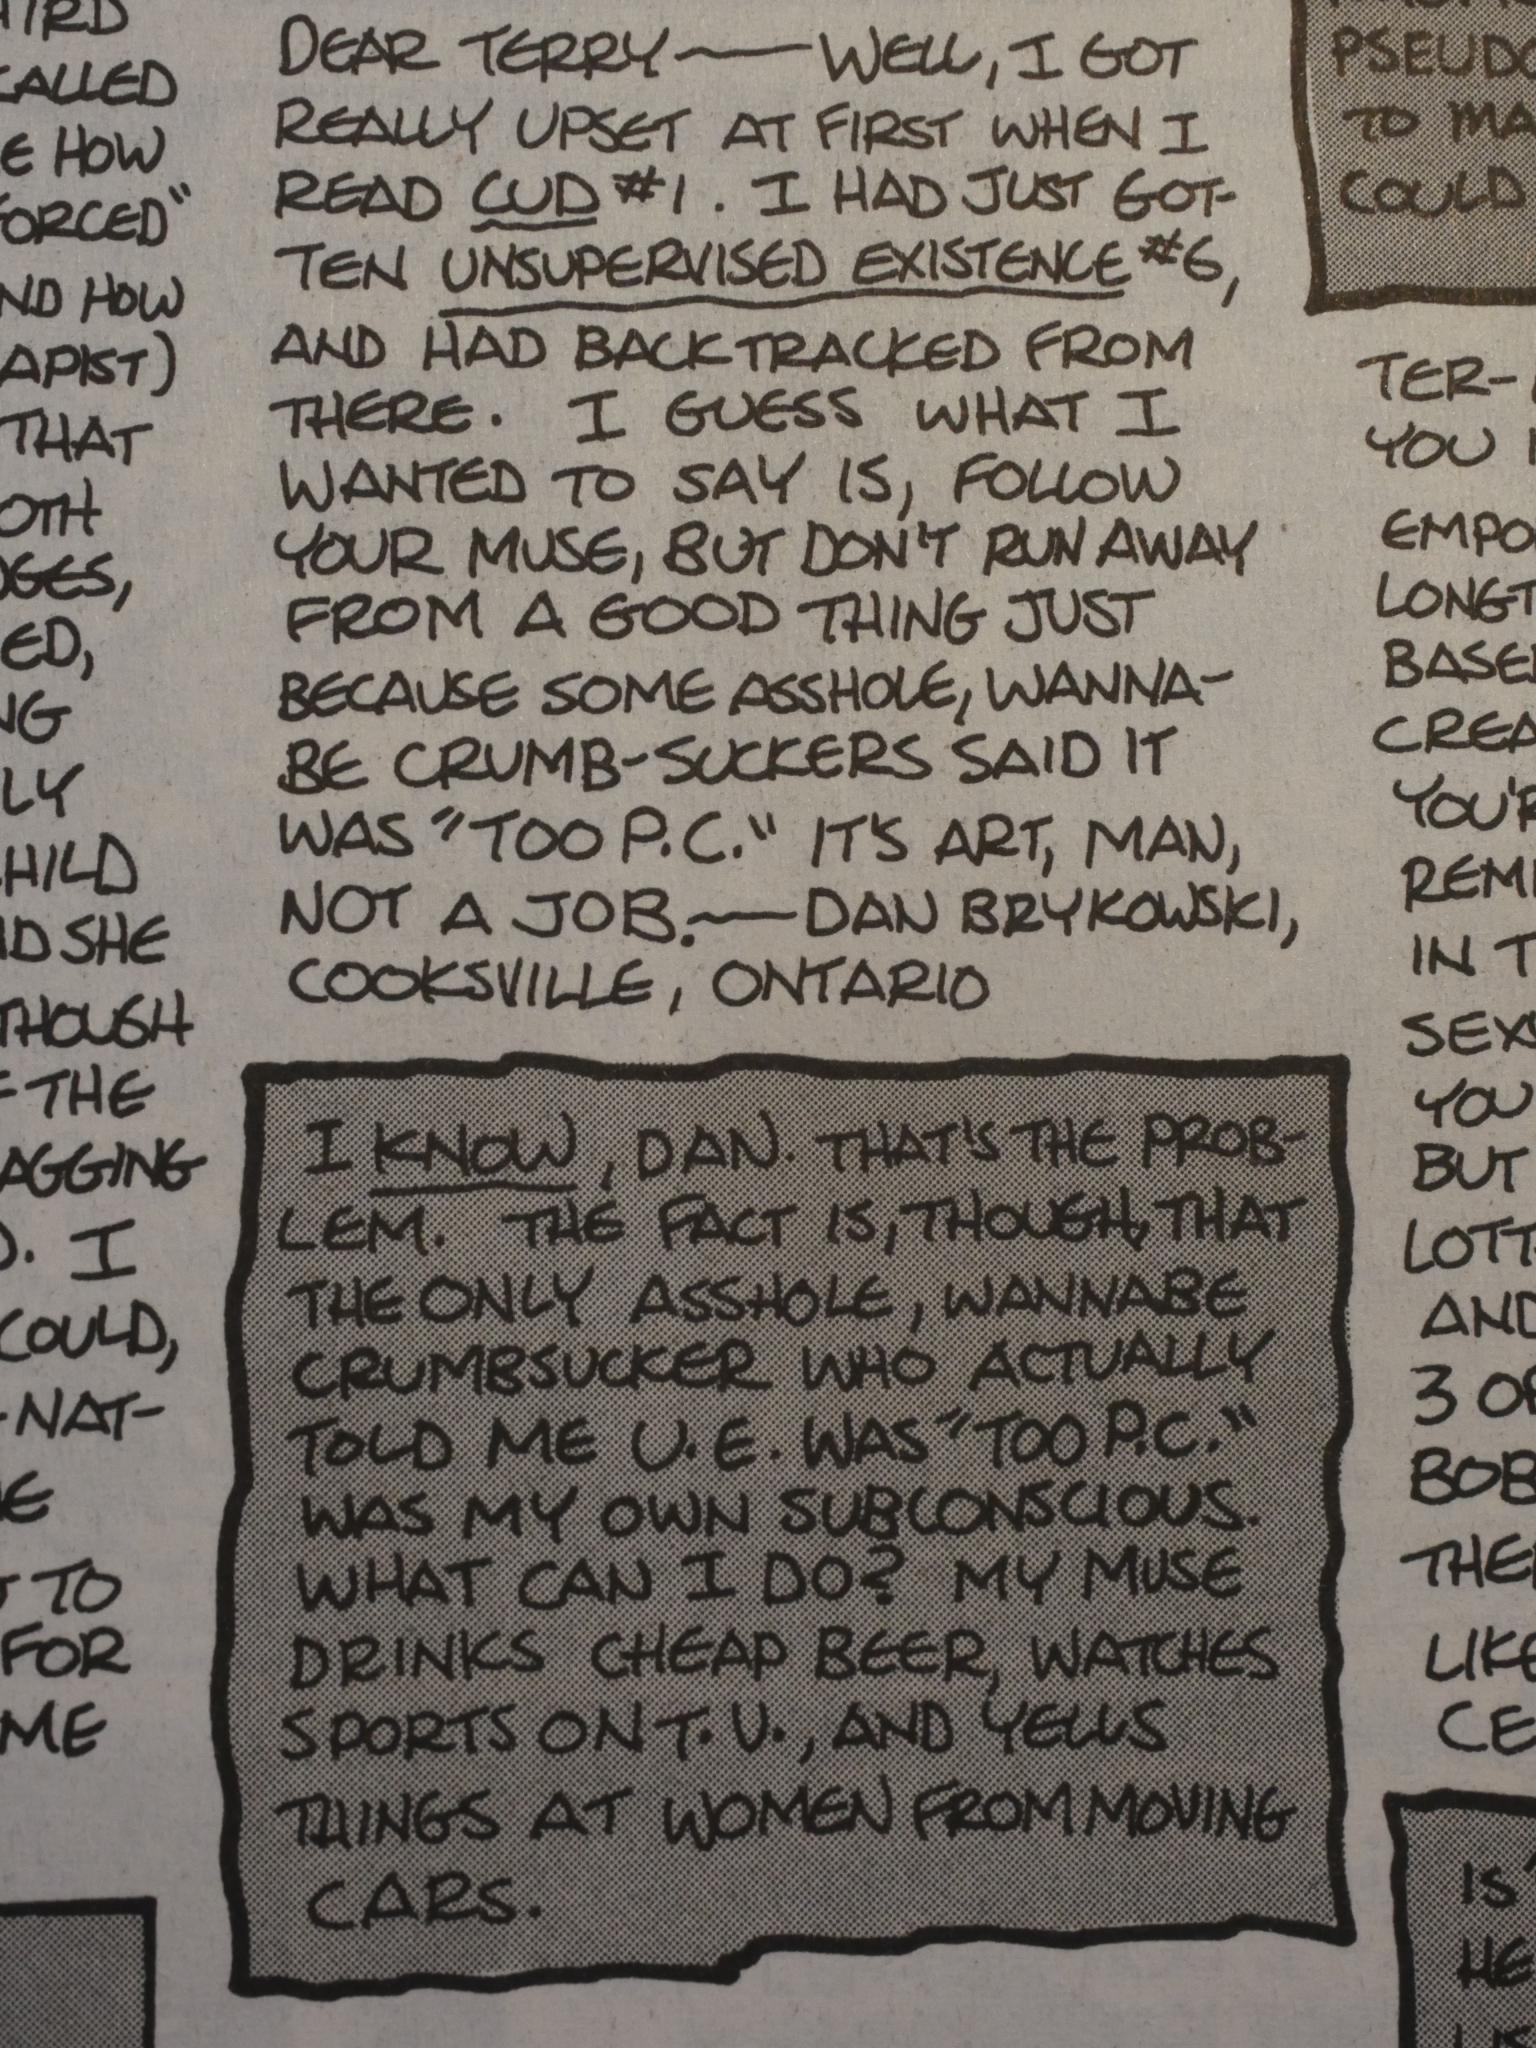 HIRD
CALLED
E HOW
FORCED"
ND HOW
APIST)
THAT
OTH
DGES,
ED,
NG
LY
HILD
ID SHE
THOUGH
F THE
AGGING
D. I
COULD,
-NAT-
E
TO
FOR
ME
DEAR TERRY — WELL, I GOT
REALLY UPSET AT FIRST WHEN I
READ CUD #1. I HAD JUST GOT-
TEN UNSUPERVISED EXISTENCE #6,
AND HAD BACKTRACKED FROM
THERE. I GUESS WHAT I
WANTED TO SAY IS, FOLLOW
YOUR MUSE, BUT DON'T RUN AWAY
FROM A GOOD THING JUST
BECAUSE SOME ASSHOLE, WANNA-
BE CRUMB-SUCKERS SAID IT
WAS "TOO P.C." IT'S ART, MAN,
NOT A JOB. — DAN BRYKOWSKI,
COOKSVILLE, ONTARIO
I KNOW, DAN. THAT'S THE PROB-
LEM. THE FACT IS, THOUGH, THAT
THE ONLY ASSHOLE, WANNABE
CRUMBSUCKER WHO ACTUALLY
TOLD ME U.E. WAS "TOO P.C."
WAS MY OWN SUBCONSCIOUS.
WHAT CAN I DO? MY MUSE
DRINKS CHEAP BEER, WATCHES
SPORTS ON T.V., AND YELLS
THINGS AT WOMEN FROM MOVING
CARS.
PSEUDO
TO MA
COULD
TER-
YOU
EMPO
LONGT
BASE
CREA
YOU'R
REMI
IN T
SEX
YOU
BUT
LOTT
AND
3 OF
BOB
THE
LIKE
CE
IS
HE